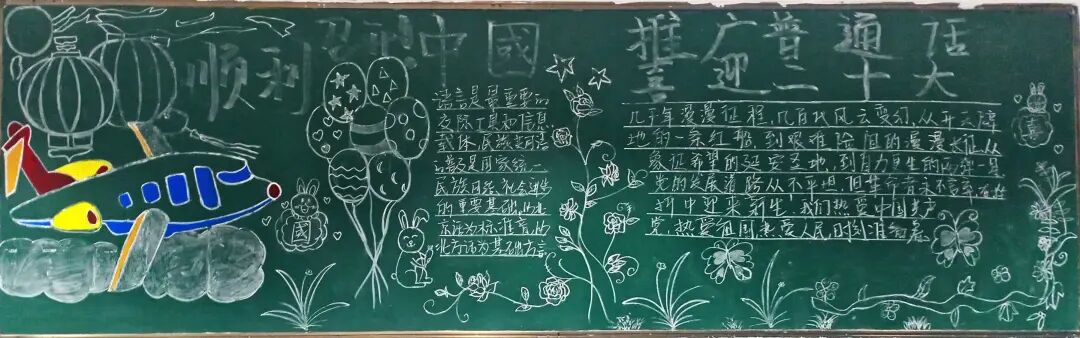 顺利 中國
推广普通话
喜迎二十大
语言是最重要的
交际工具和信息
载体,民族共同语
言是国家统一
民族团结,社会进步
的重要基础,以北
京语音为标准音,以
北方话为基础方言
國
喜
几千年漫漫征程,几百代风云变幻,从开天辟
地的一条红船,到艰难险阻的漫漫长征,从
象征希望的延安圣地,到自力更生的
党的发展道路从不平坦,但革命者永不言弃,在
中迎来新生,我们热爱中国共产
党,热爱祖国,热爱人民,时刻准备着